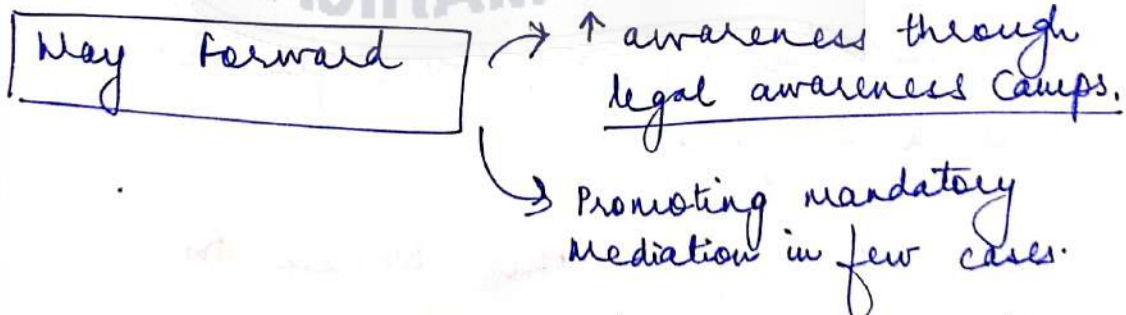 Way Forward
↑ awareness through
legal awareness Camps.
Promoting mandatory
Mediation in few cases.